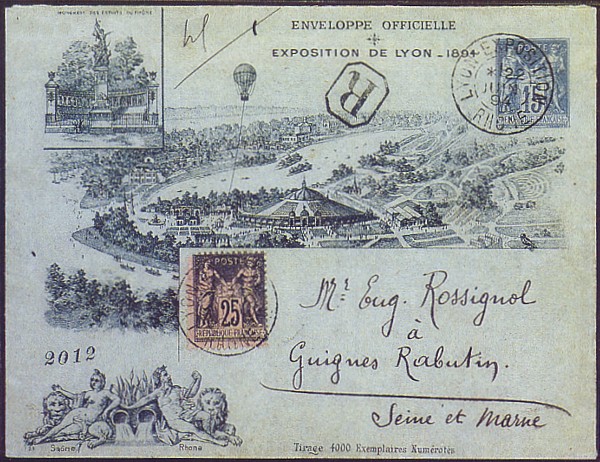 MONUMENT DES ENFANTS DU RHÔNE
ENVELOPPE OFFICIELLE
EXPOSITION DE LYON _ 1894
R
LYON-EXPOSITION
22
JUIN
94
RHONE
15
POSTES
25
REPUBLIQUE FRANCAISE
LYON
RHONE
Mr Eug. Rossignol
à
Guignes Rabutin.
Seine et Marne
2012
Saône
Rhone
Tirage 4000 Exemplaires Numérotés